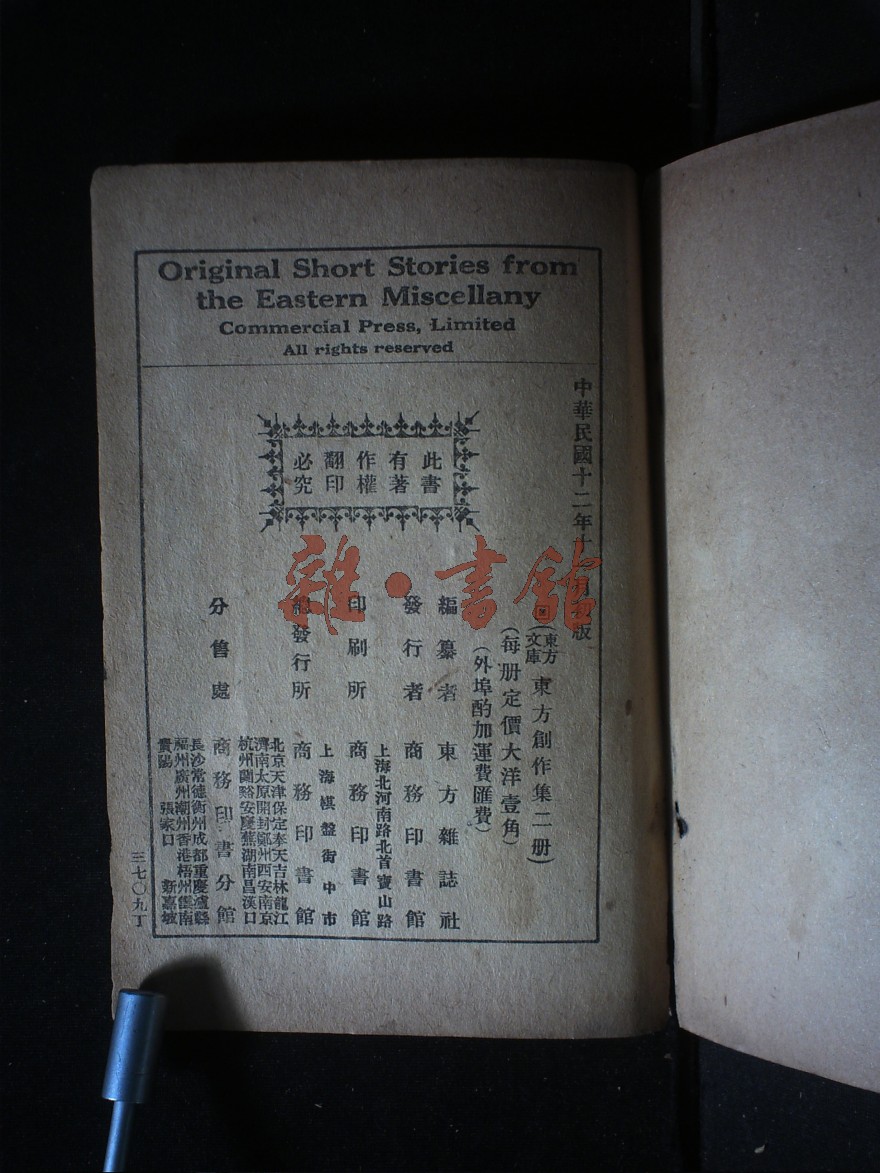 Original Short Stories from
the Eastern Miscellany
Commercial Press, Limited
All rights reserved
中華民國十二年十月初版
此書
有著
作權
翻印
必究
(東方
文庫東方創作集二册)
(每册定價大洋壹角)
(外埠酌加運費匯費)
編纂者 東方雜誌社
發行者 商務印書館
上海北河南路北首寶山路
印刷所 商務印書館
上海棋盤街中市
總發行所 商務印書館
北京天津保定奉天吉林龍江
濟南太原開封鄭州西安南京
杭州蘭谿安慶蕪湖南昌漢口
分售處 商務印書分館
長沙常德衡州成都重慶瀘縣
福州廣州潮州香港梧州雲南
貴陽 張家口 新嘉坡
三七〇九丁
雜·書館